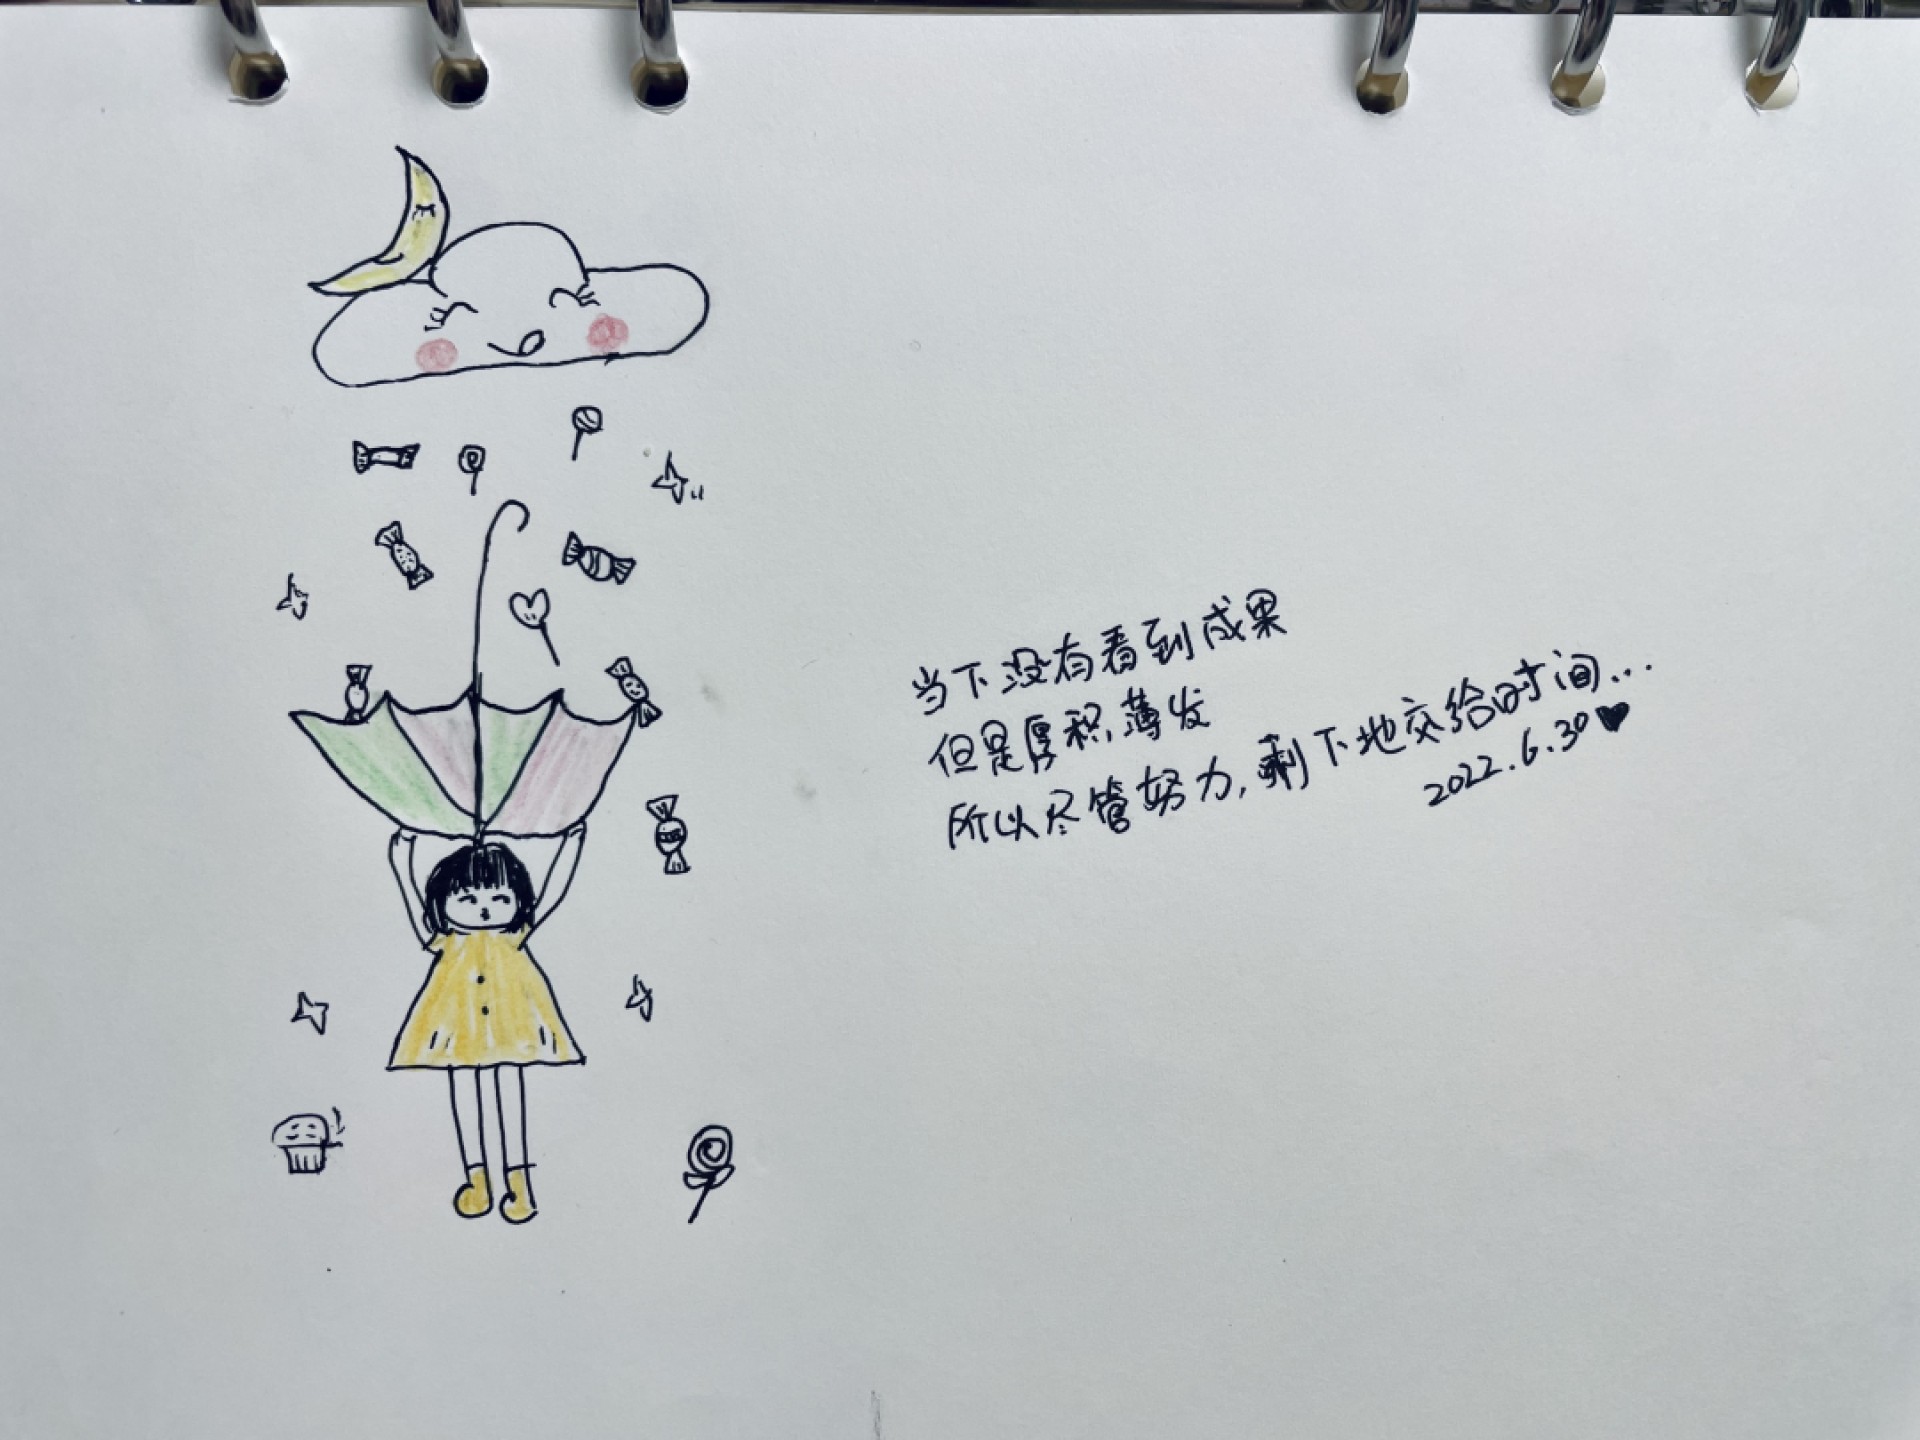 当下没有看到成果
但是厚积薄发
所以尽管努力,剩下地交给时间...
2022.6.30♥